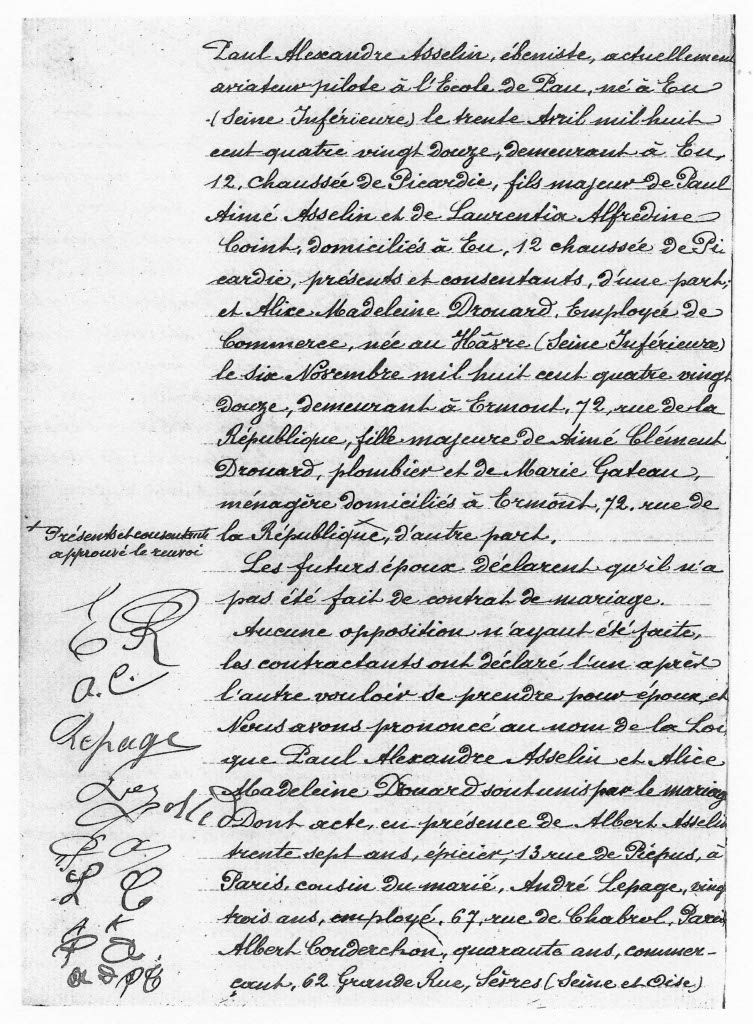 Paul Alexandre Asselin, ébeniste, actuellement
aviateur pilote à l'Ecole de Pau, né à Eu
(Seine Inférieure) le trente Avril mil huit
cent quatre vingt douze, demeurant à Eu,
12, chaussée de Picardie, fils majeur de Paul
Aimé Asselin et de Laurentia Alfrédine
Coint, domiciliés à Eu, 12 chaussée de Pi
cardie, présents et consentants, d'une part;
et Alice Madeleine Drouard, Employée de
Commerce, née au Hâvre (Seine Inférieure)
le six Novembre mil huit cent quatre vingt
douze, demeurant à Ermont, 72, rue de la
République, fille majeure de Aimé Clément
Drouard, plombier et de Marie Gateau,
ménagère domiciliés à Ermont, 72, rue de
la République, d'autre part.
+ Présents et consentants
approuvé le renvoi
Les futurs époux déclarent qu'il n'a
pas été fait de contrat de mariage.
Aucune opposition n'ayant été faite,
les contractants ont déclaré l'un après
l'autre vouloir se prendre pour époux, et
Nous avons prononcé au nom de la Loi
que Paul Alexandre Asselin et Alice
Madeleine Drouard sont unis par le mariag
Dont acte, en présence de Albert Asselin
trente sept ans, épicier, 13 rue de Picpus, à
Paris, cousin du marié, André Lepage, ving
trois ans, employé, 67, rue de Chabrol, Paris
Albert Couderchon, quarante ans, commer-
çant, 62 Grande Rue, Sèvres (Seine et Oise)
E R
a. C.
Lepage